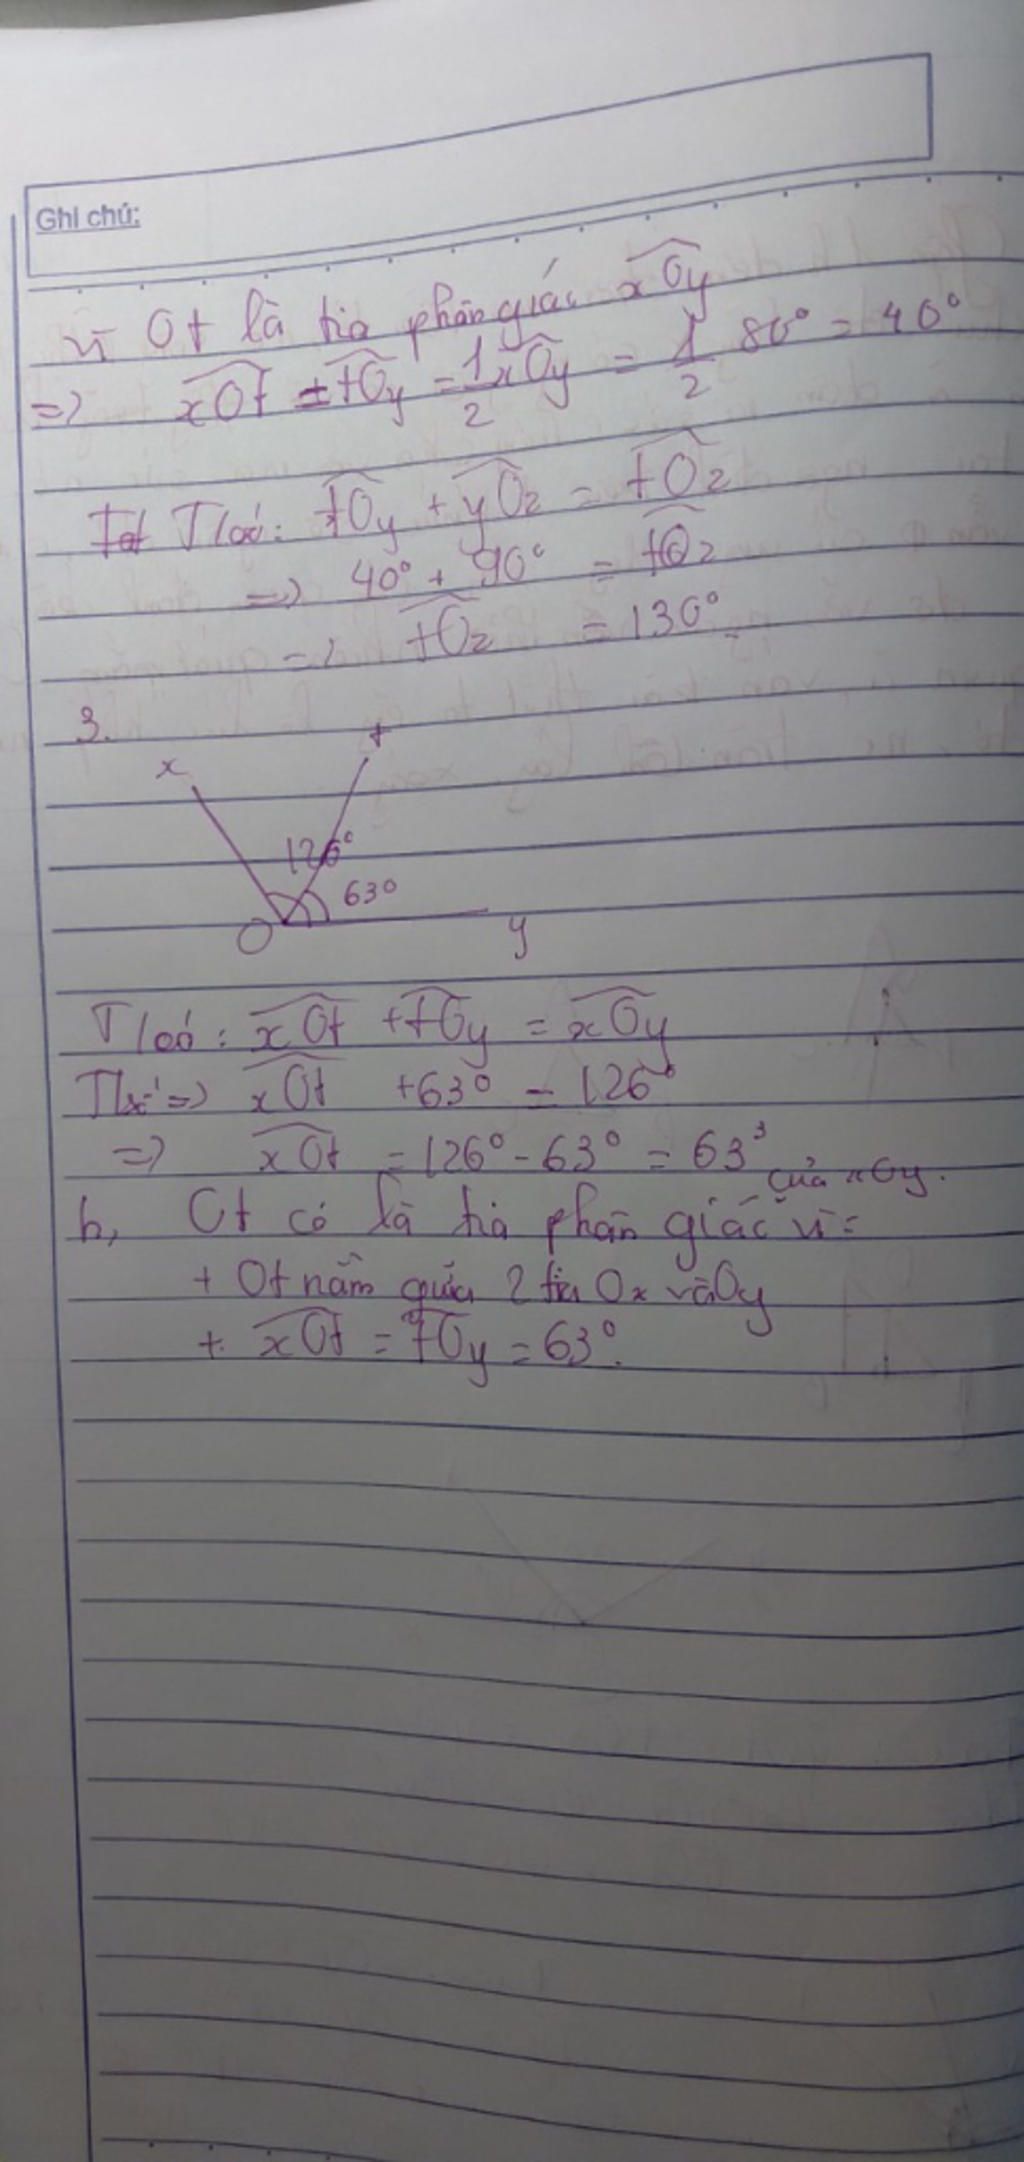 Ghi chú:
vì Ot là tia phân giác xOy
=> xOt = tOy = 1/2 xOy = 1/2 80° = 40°
Ta có: tOy + yOz = tOz
=> 40° + 90° = tOz
=> tOz = 130°
3.
x t
126°
63°
O y
Ta có: xOt + tOy = xOy
=> xOt + 63° = 126°
=> xOt = 126° - 63° = 63°
của xOy.
b, Ot có là tia phân giác vì:
+ Ot nằm giữa 2 tia Ox và Oy
+ xOt = tOy = 63°.